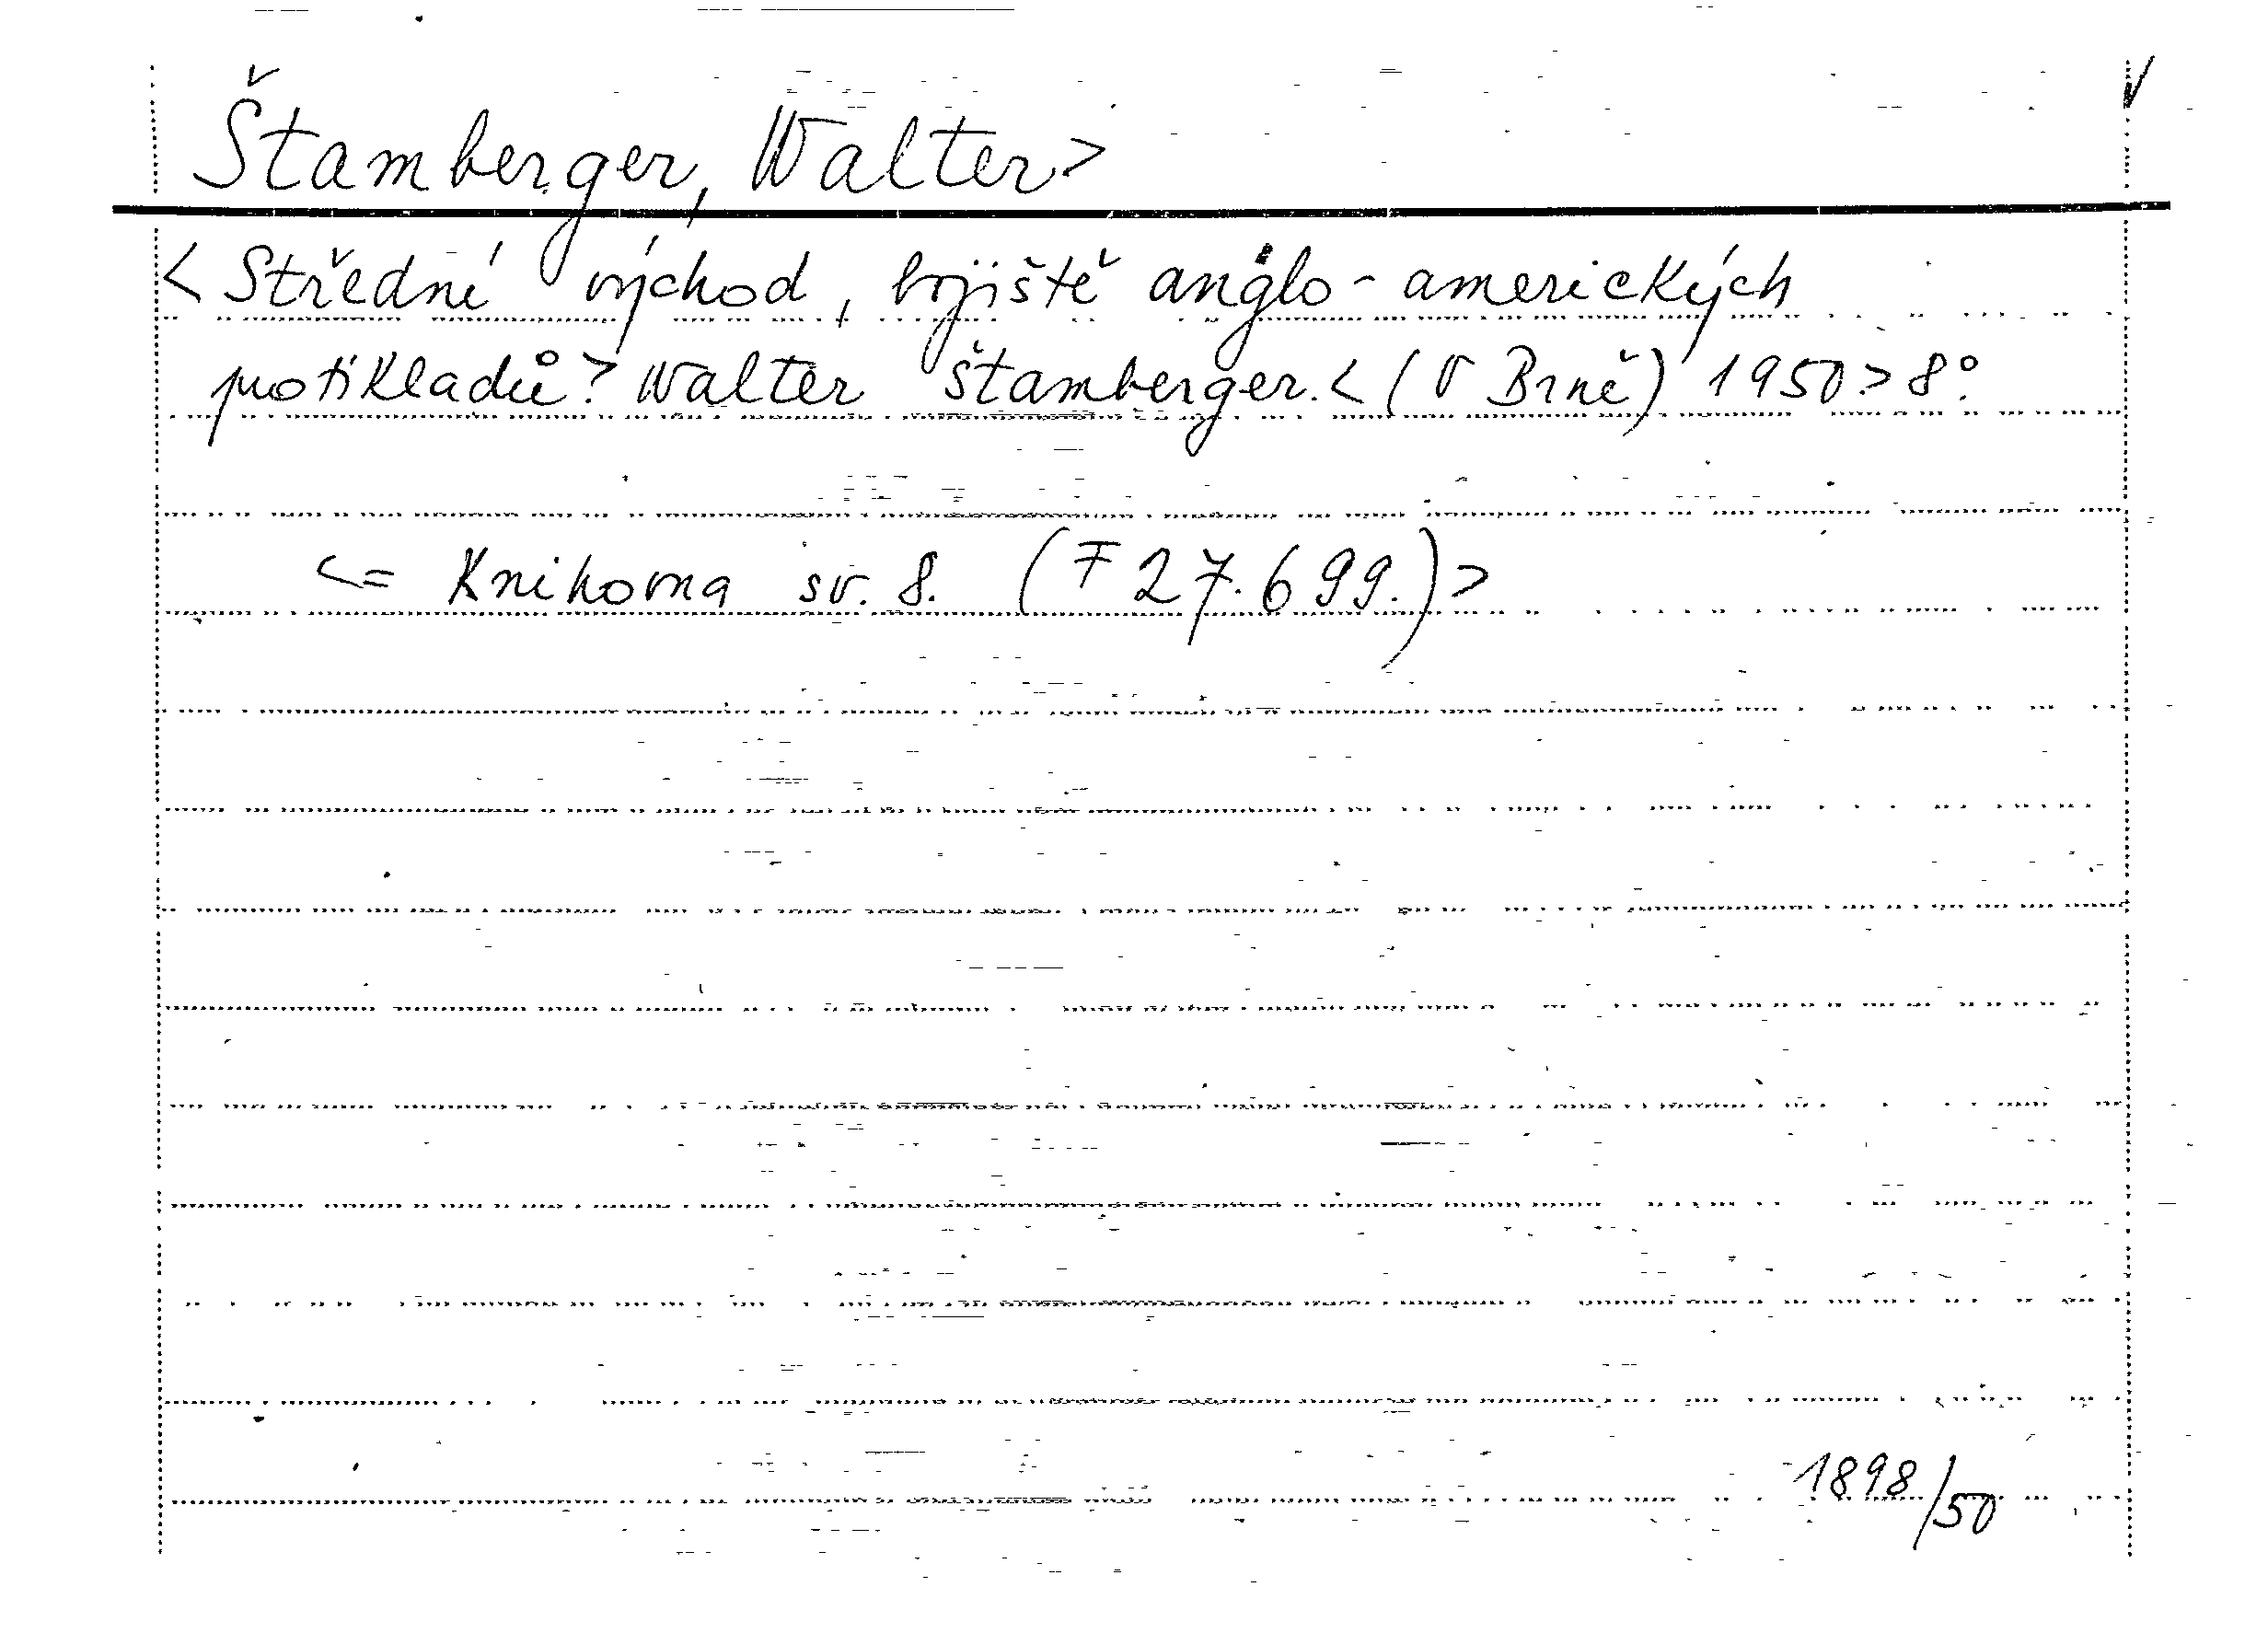 Štamberger, Walter>
<Střední východ, bojiště anglo-amerických
protikladů? Walter Štamberger.<(V Brně) 1950>8°.
<= Knihovna sv. 8. (F 27.699.)>
1898/50